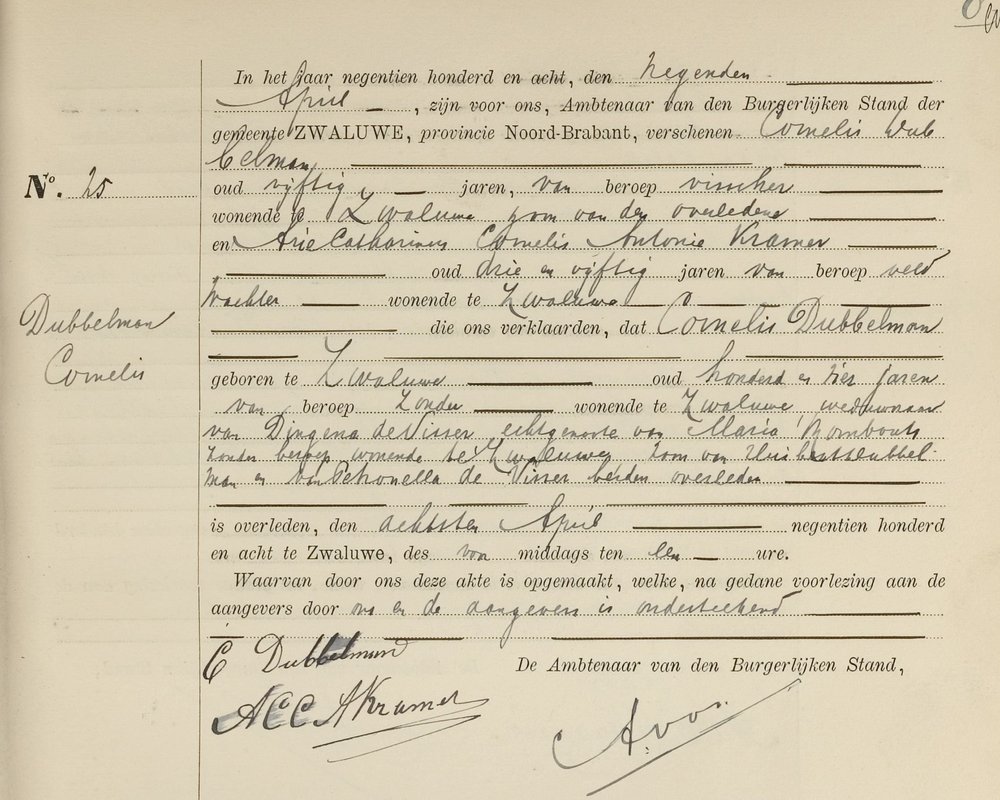 In het Jaar negentien honderd en acht, den negenden
April, zijn voor ons, Ambtenaar van den Burgerlijken Stand der
gemeente ZWALUWE, provincie Noord-Brabant, verschenen Cornelis Dub
belman
Nº. 25
oud vijftig jaren, van beroep visscher
wonende te Zwaluwe zoon van den overledene
en Arie Catharinus Cornelis Antonie Kramer
oud drie en vijftig jaren van beroep veld
wachter wonende te Zwaluwe
Dubbelman
Cornelis
die ons verklaarden, dat Cornelis Dubbelman
geboren te Zwaluwe oud honderd en vier jaren
van beroep zonder wonende te Zwaluwe weduwnaar
van Dingena de Visser echtgenoote van Maria Rombouts
zonder beroep wonende te Zwaluwe, zoon van Huibert Dubbel-
man en van Petronella de Visser beiden overleden
is overleden, den achtsten April negentien honderd
en acht te Zwaluwe, des voor middags ten een ure.
Waarvan door ons deze akte is opgemaakt, welke, na gedane voorlezing aan de
aangevers door ons en de aangevers is onderteekend
C Dubbelman
De Ambtenaar van den Burgerlijken Stand,
A C C A Kramer